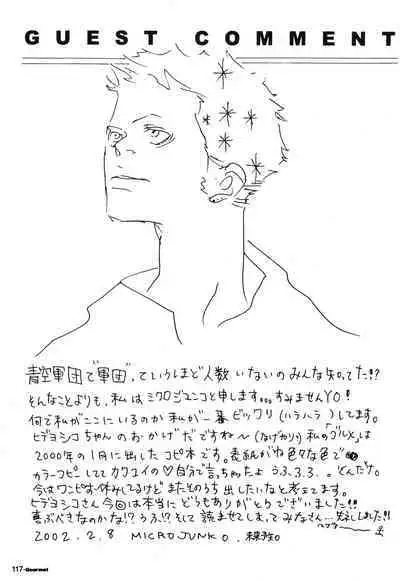 GUEST COMMENT
青空軍団で"軍団"、ていうほど人数いないのみんな知ってた!?
そんなことよりも、私はミクロジュンコと申します。。。すみませんYO!
何で私がここにいるのか私が一番ビックリ(ハラハラ)してます。
ヒデヨシコちゃんのおかげだですね〜(なげやり)私の「グルメ」は
2000年の1月に出したコピ本です。表紙がね色々な色で
カラーコピーしててカワユイの♡自分で言っちゃったようふ3.3.。どんだけ。
今はワンピお休みしてるけどまたそのうち出したいなと考えてます。
ヒデヨシコさん今回は本当にどうもありがとうございました!!
喜ぶべきなのかな!?うふ!?そして読ませてしまってみなさん…失礼しました!!
2002.2.8 MICROJUNKO.
117-Gourmet